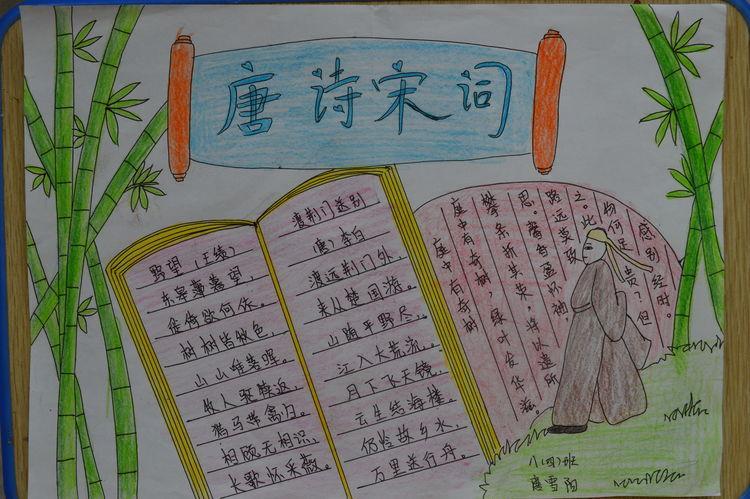 唐诗宋词
野望（王绩）
东皋薄暮望，
徙倚欲何依。
树树皆秋色，
山山唯落晖。
牧人驱犊返，
猎马带禽归。
相顾无相识，
长歌怀采薇。
渡荆门送别
唐）李白
渡远荆门外，
来从楚国游。
山随平野尽，
江入大荒流。
月下飞天镜，
云生结海楼。
仍怜故乡水，
万里送行舟。
庭中有奇树
庭中有奇树，绿叶发华滋。
攀条折其荣，将以遗所
思。馨香盈怀袖，
路远莫致
之。此
物何足贵？但
感别经时。
八（四）班